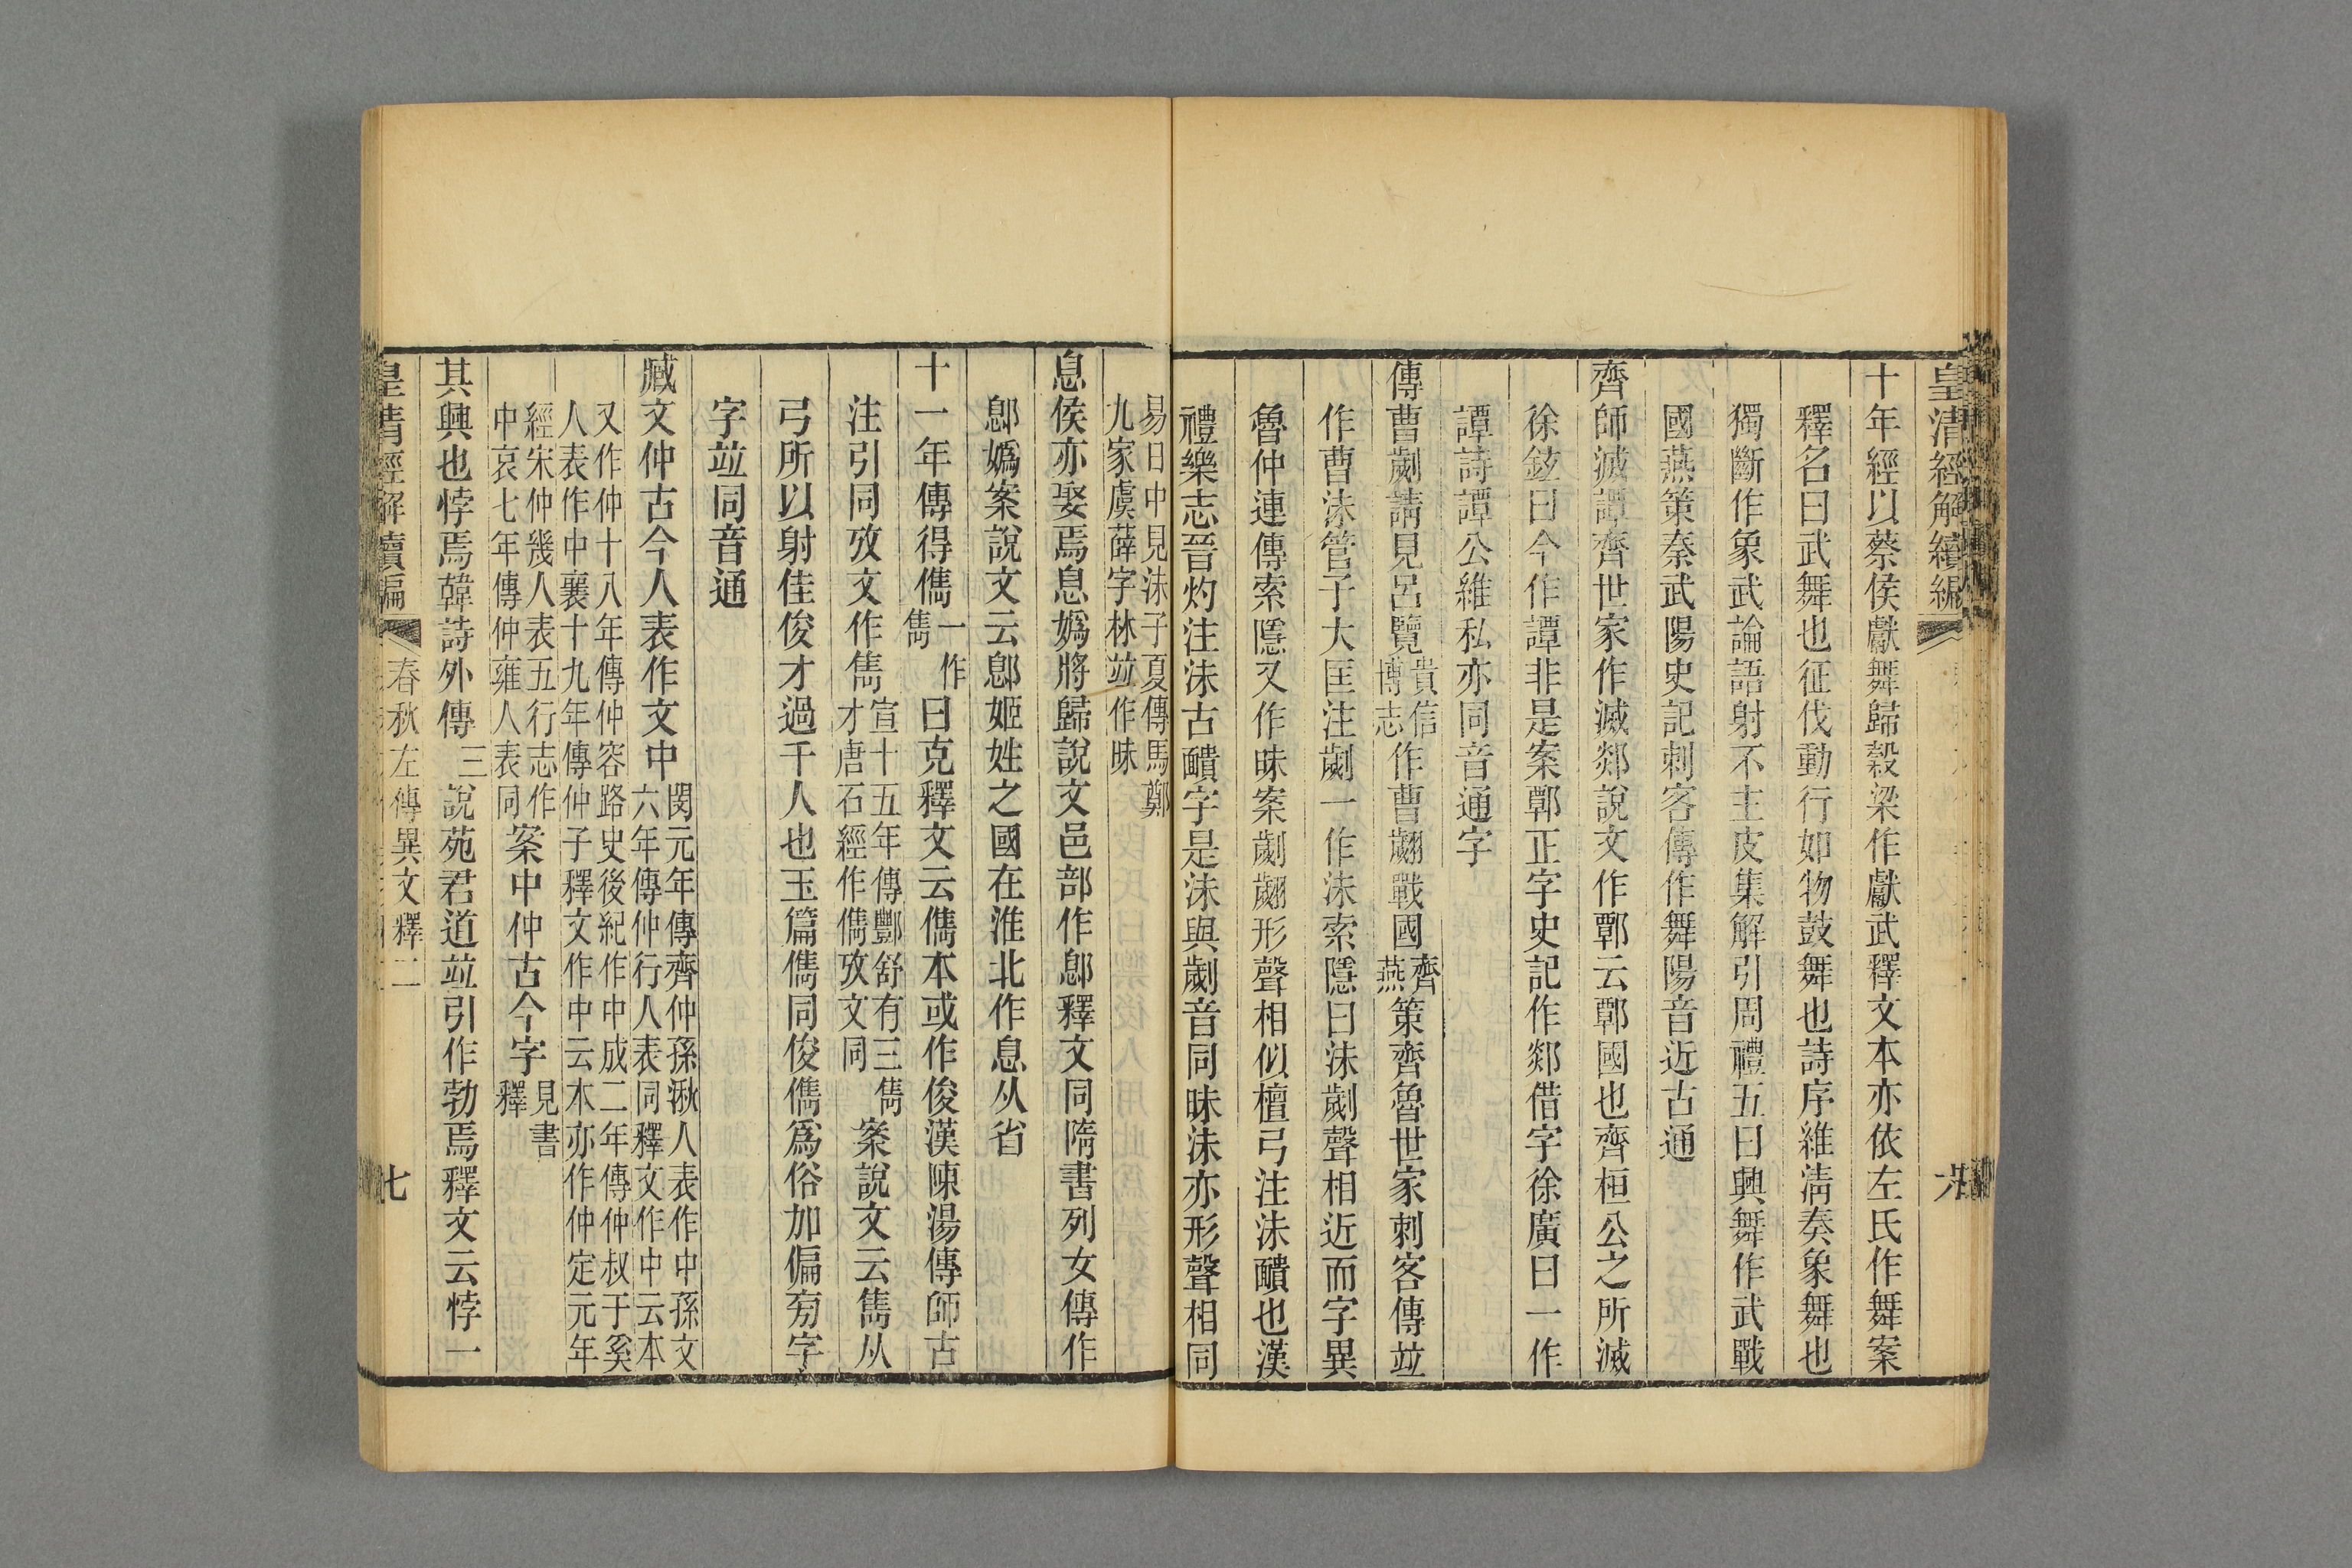 皇清經解續編
六
十年經以蔡侯獻舞歸穀梁作獻武釋文本亦依左氏作舞案
釋名曰武舞也征伐動行如物鼓舞也詩序維清奏象舞也
獨斷作象武論語射不主皮集解引周禮五曰興舞作武戰
國燕策秦武陽史記刺客傳作舞陽音近古通
齊師滅譚齊世家作滅郯說文作鄿云鄿國也齊桓公之所滅
徐鉉曰今作譚非是案鄿正字史記作郯借字徐廣曰一作
譚詩譚公維私亦同音通字
傳曹劌請見呂覽貴信博志作曹翽戰國齊燕策齊魯世家刺客傳竝
作曹沬管子大匡注劌一作沬索隱曰沬劌聲相近而字異
魯仲連傳索隱又作昧案劌翽形聲相似檀弓注沬靧也漢
禮樂志晉灼注沬古靧字是沬與劌音同昧沬亦形聲相同
易日中見沬子夏傳馬鄭
九家虞薛字林竝作昧
息侯亦娶焉息嬀將歸說文邑部作鄎釋文同隋書列女傳作
鄎嬀案說文云鄎姬姓之國在淮北作息从省
十一年傳得儁一作雋曰克釋文云儁本或作俊漢陳湯傳師古
注引同攷文作雋宣十五年傳酆舒有三雋才唐石經作儁攷文同案說文云雋从
弓所以射隹俊才過千人也玉篇儁同俊儁爲俗加偏旁字
字竝同音通
臧文仲古今人表作文中閔元年傳齊仲孫湫人表作中孫文六年傳仲行人表同釋文作中云本
又作仲十八年傳仲容路史後紀作中成二年傳仲叔于奚
人表作中襄十九年傳仲子釋文作中云本亦作仲定元年
經宋仲幾人表五行志作中哀七年傳仲雍人表同案中仲古今字見書釋
其興也悖焉韓詩外傳三說苑君道竝引作勃焉釋文云悖一
皇清經解續編
春秋左傳異文釋二
七